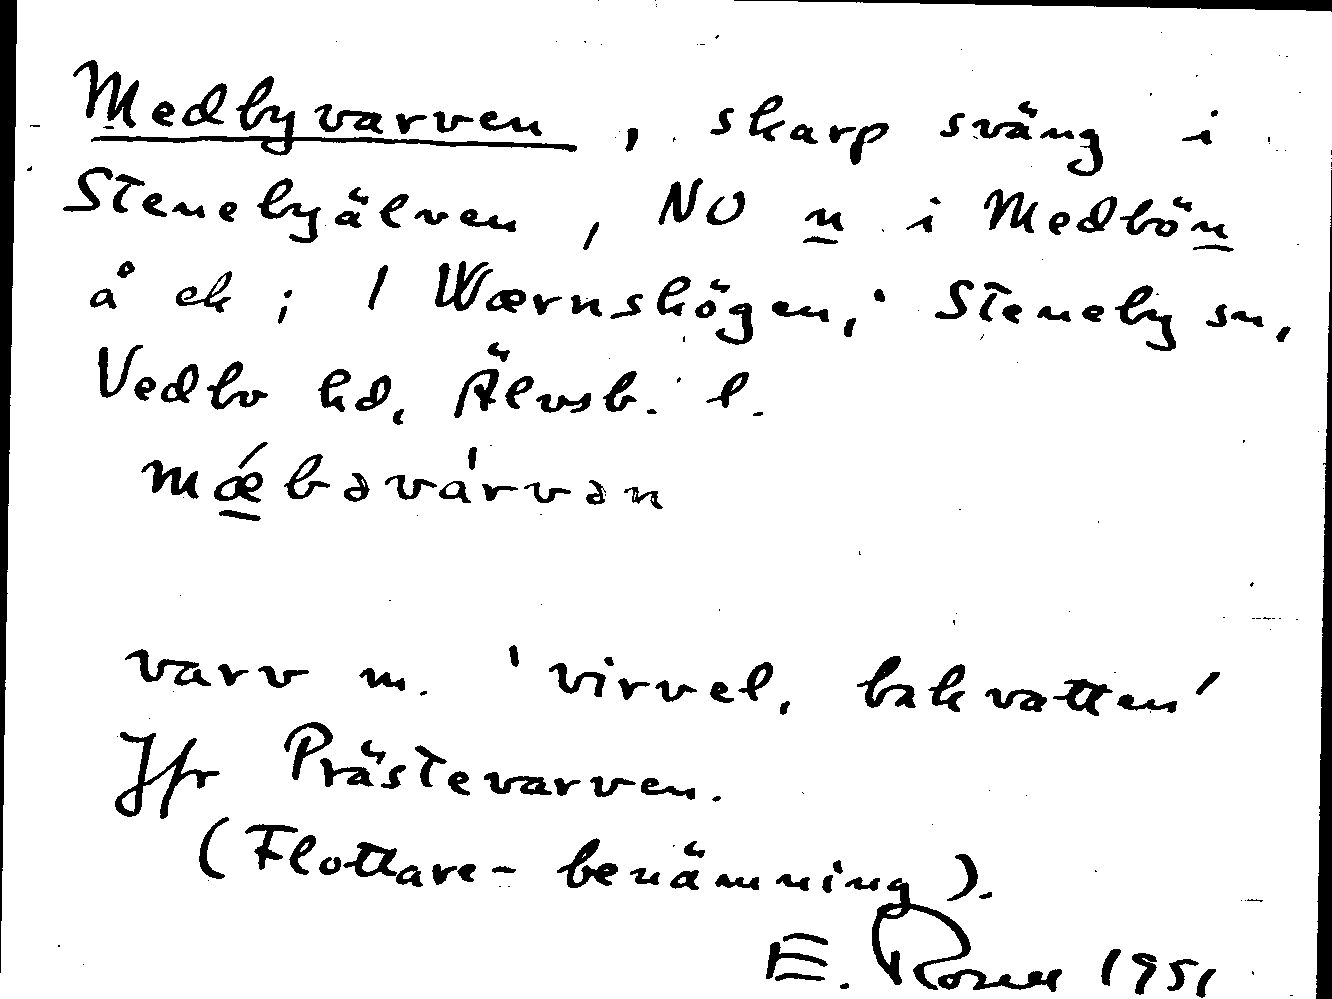 Medbyvarven, skarp sväng i
Stenebyälven, NO n i Medbön
å ek; / Wærnshögen, Steneby sn,
Vedbo hd, Älvsb. l.
mǽbəvárvən
varv m. 'virvel, bakvatten'
Jfr Prästevarven.
(Flottare-benämning).
E. Rosell 1951